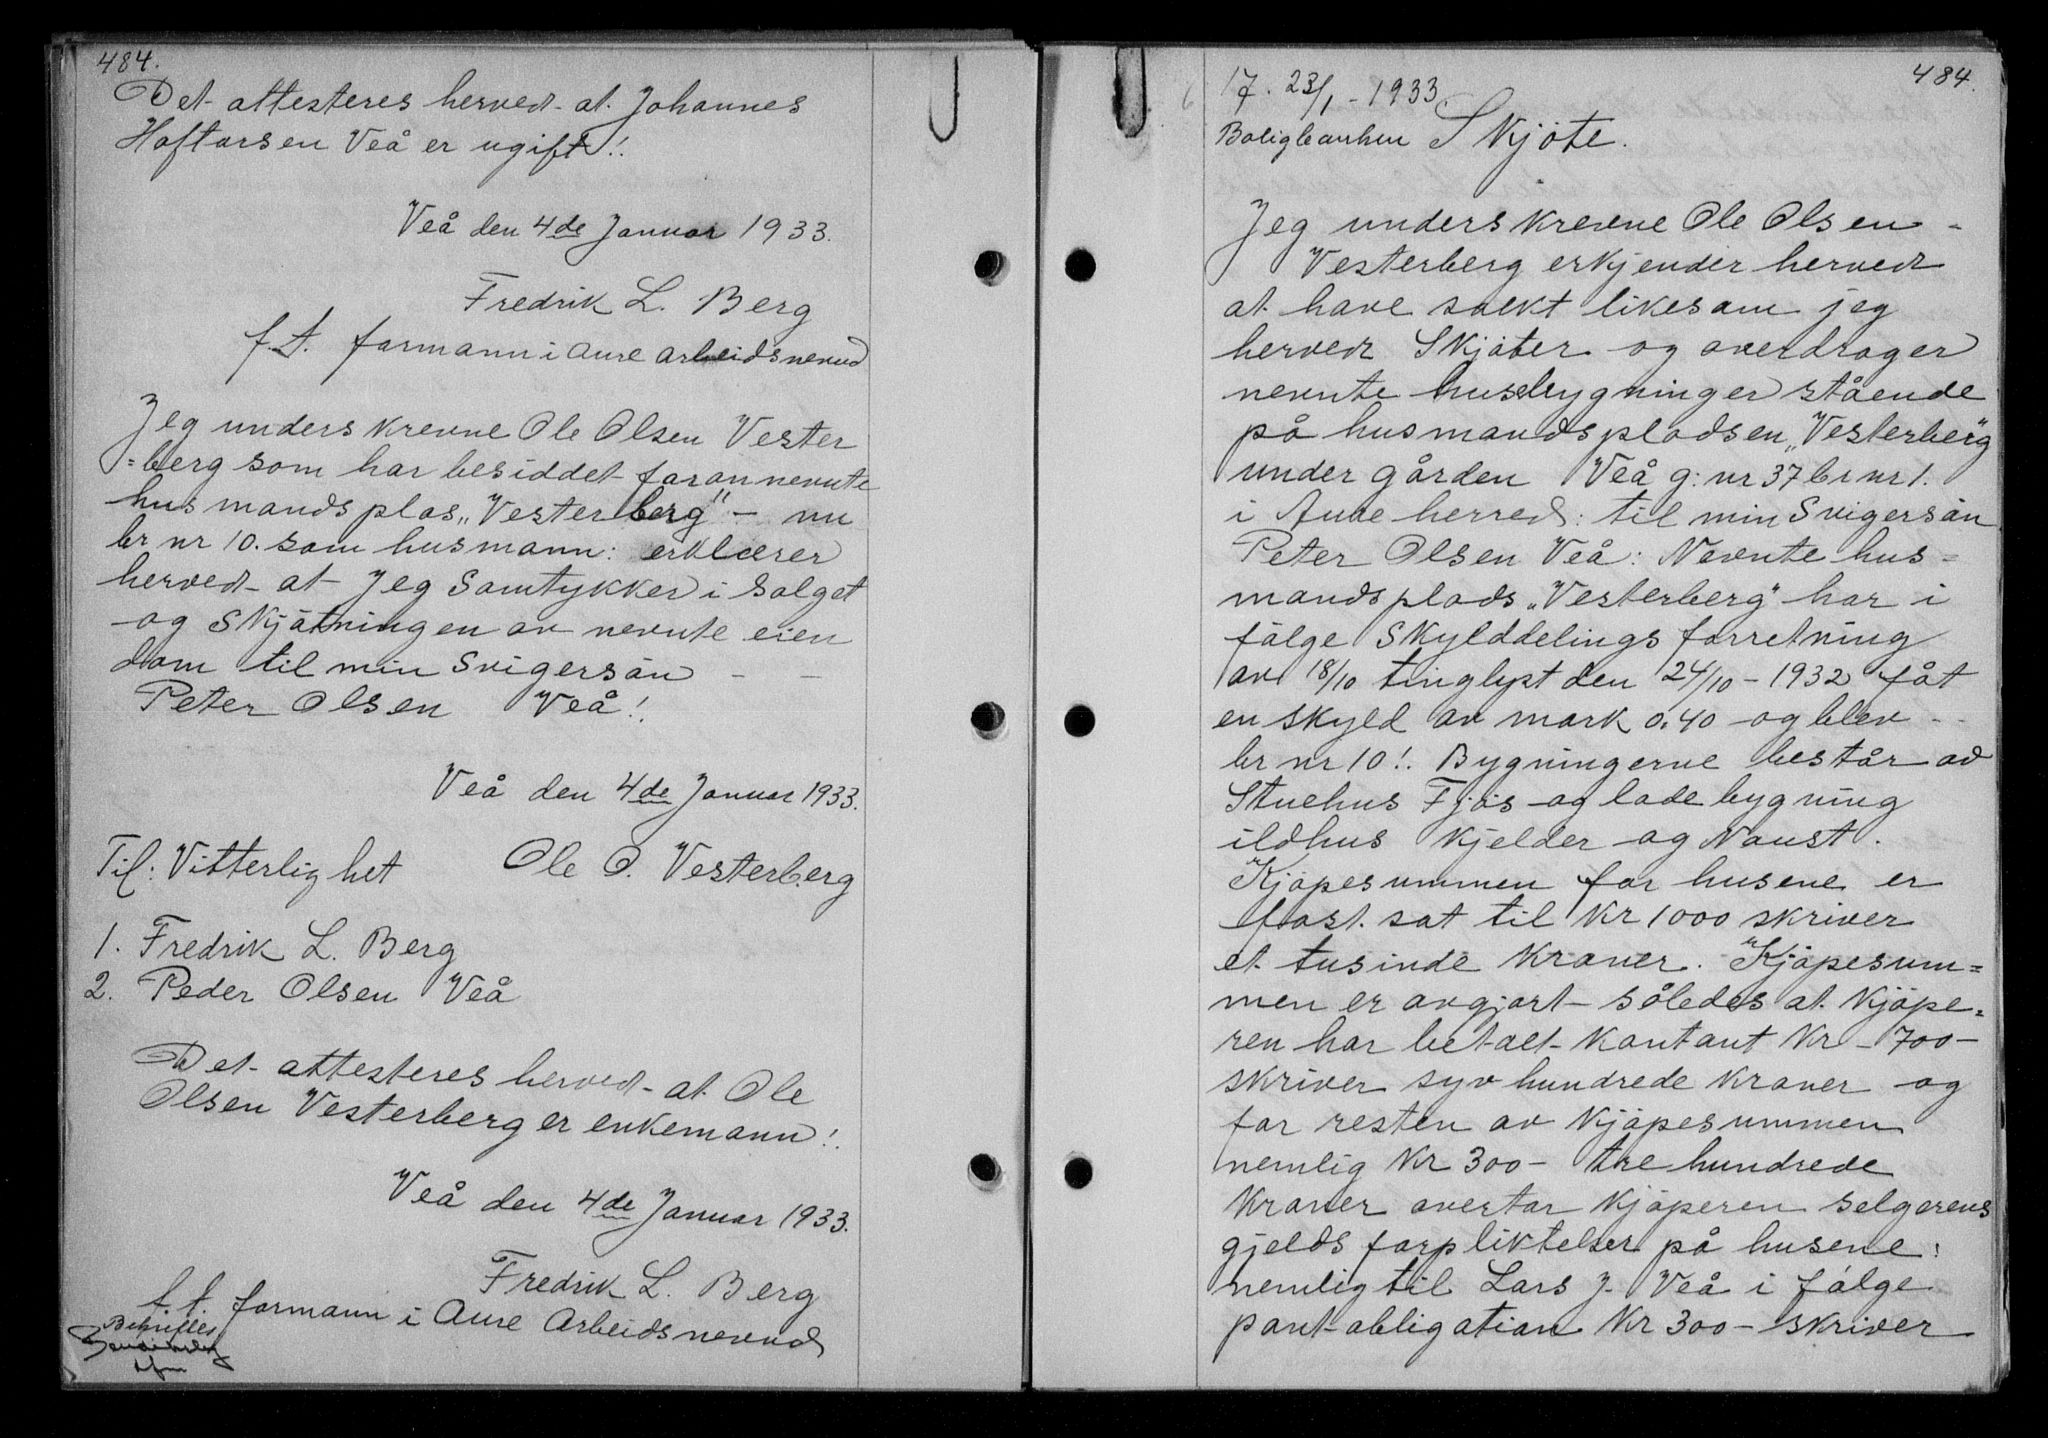 484.
Det attesteres herved at Johannes
Haftorsen Veå er ugift!.
Veå den 4de Januar 1933.
Fredrik L. Berg
f.t. formann i Aure arbeidsnevnd
Jeg underskrevne Ole Olsen Vester
=berg som har besiddet forannevnte
husmandsplas „Vesterberg" – nu
br nr 10. som husmann: erklærer
herved at Jeg Samtykker i Salget
og Skjötningen av nevnte eien
dom til min Svigersön – –
Peter Olsen Veå!.
Veå den 4de Januar 1933.
Til: Vitterlighet Ole O. Vesterberg
1. Fredrik L. Berg
2. Peder Olsen Veå
Det attesteres herved at Ole
Olsen Vesterberg er enkemann!.
Veå den 4de Januar 1933.
Fredrik L. Berg
f.t. formann i Aure Arbeidsnevnd
Bekreftes
484.
17. 23/1 - 1933
Boligbanken Skjöte.
Jeg underskrevne Ole Olsen -
Vesterberg erkjender herved
at have solkt likesom jeg
herved Skjöter og overdrager
nevnte husebygninger stående
på husmandspladsen „Vesterberg"
under gården Veå g: nr 37 br nr 1.
i Aure herred: til min Svigersön
Peter Olsen Veå: Nevnte hus=
mandsplads „Vesterberg" har i
fölge Skylddelingsforretning
av 18/10 tinglyst den 24/10 - 1932 fåt
en skyld av mark 0.40 og blev -
br nr 10!. Bygningerne består av
Stuehus Fjös og ladebygning
ildhus kjelder og Naust.
Kjöpesummen for husene er
fast sat til Kr 1000 skriver
et tusinde Kroner. Kjöpesum=
men er avgjort således at Kjöpe=
ren har betalt Kontant Kr - 700 -
skriver syv hundrede kroner og
for resten av Kjöpesummen
nemlig Kr 300 - tre hundrede
Kroner overtar Kjöperen selgerens
gjelds forpliktelser på husene:
nemlig til Lars J. Veå i fölge
pant obligation Kr 300 - skriver